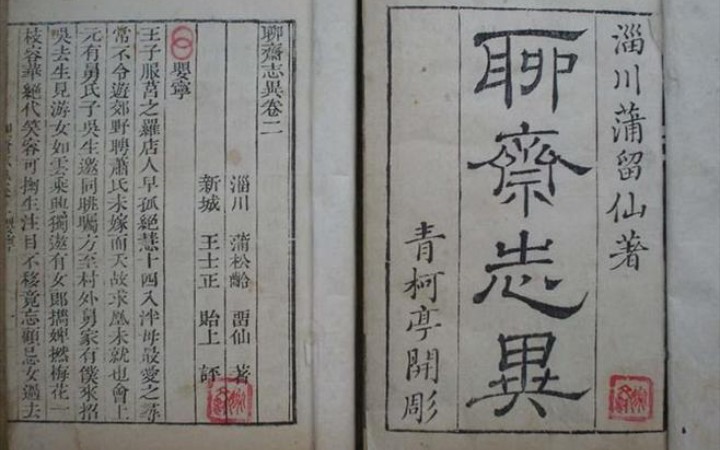 淄川蒲留仙著
聊齋志異
青柯亭開彫
聊齋志異卷二
淄川 蒲松齡 畱仙 著
新城 王士正 貽上 評
嬰寧
王子服莒之羅店人早孤絶慧十四入泮母最愛之尋
常不令遊郊野聘蕭氏未嫁而夭故求凰未就也會上
元有舅氏子吳生邀同眺矚方至村外舅家有僕來招
吳去生見游女如雲乘興獨遨有女郎攜婢撚梅花一
枝容華絶代笑容可掬生注目不移竟忘顧忌女過去